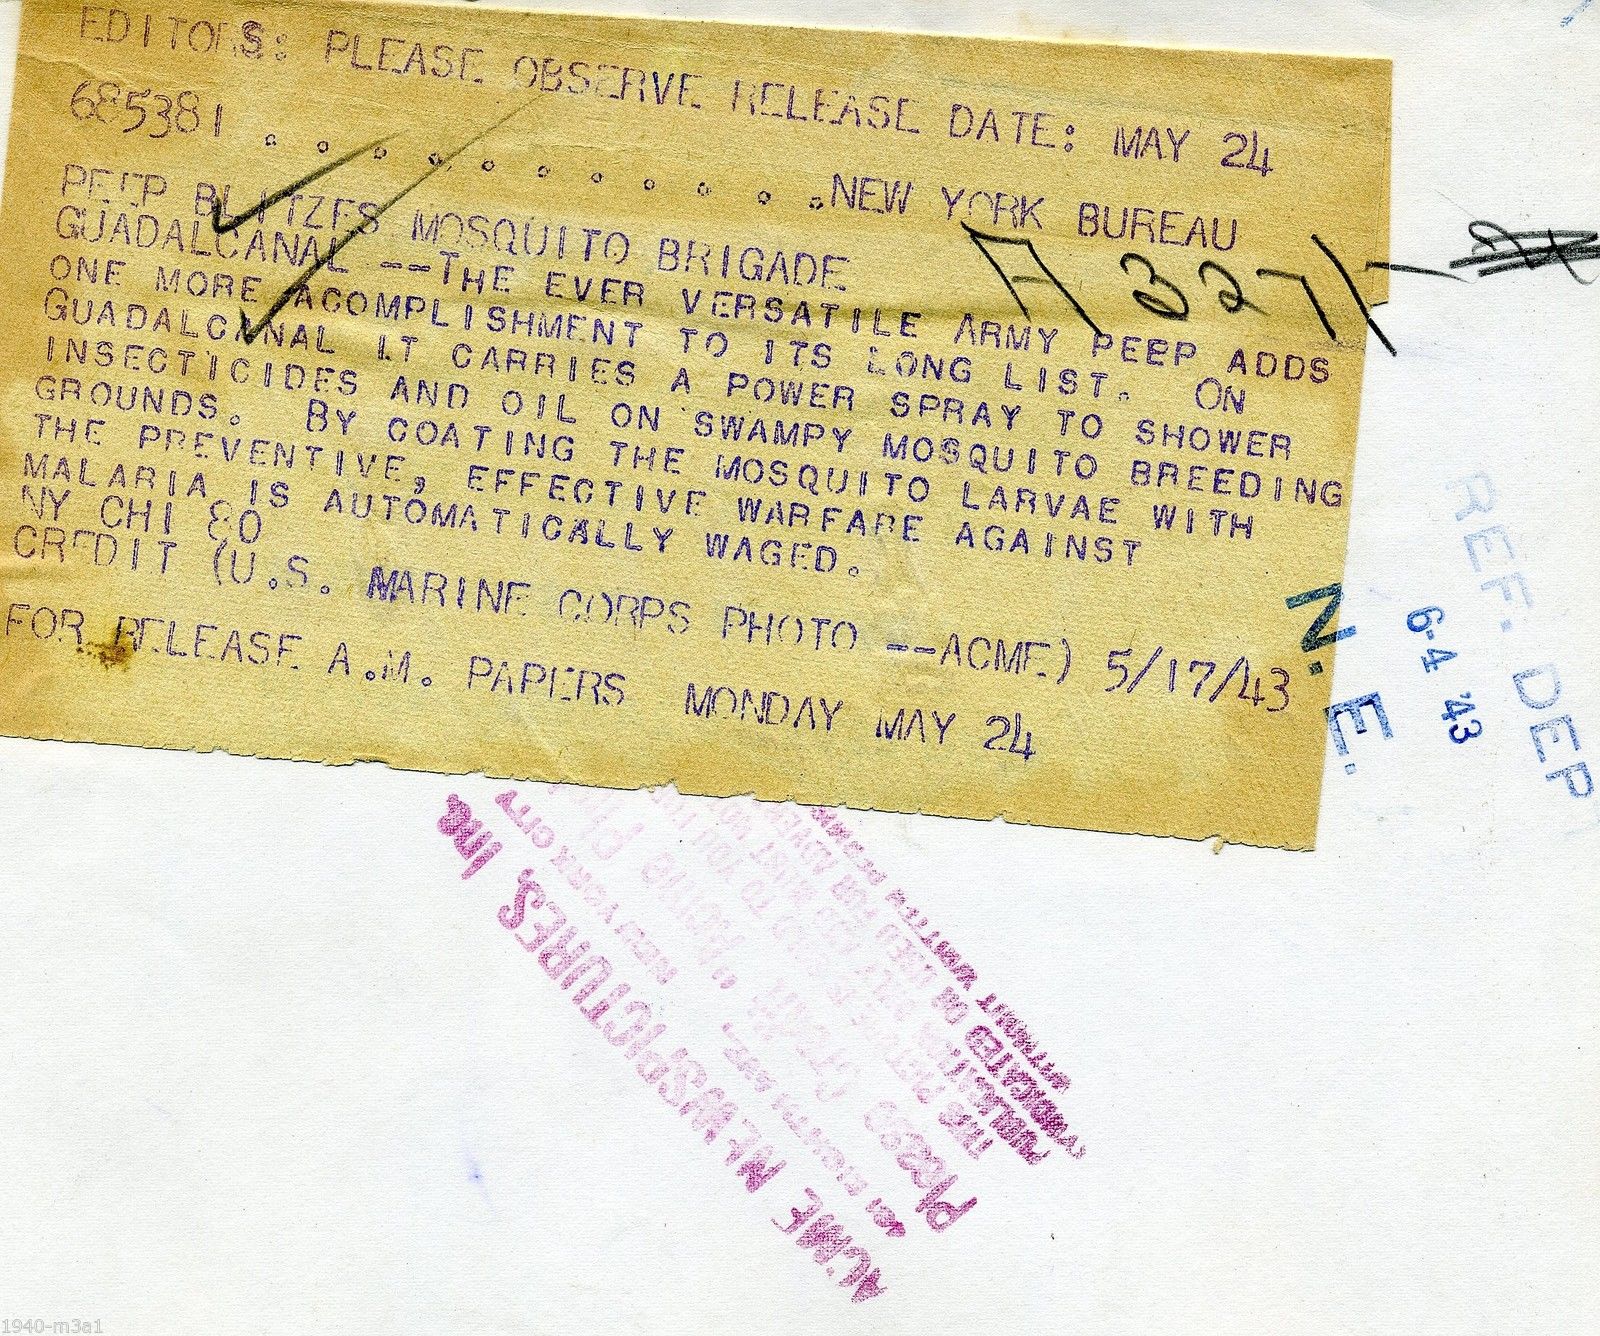 EDITORS: PLEASE OBSERVE RELEASE DATE: MAY 24
685381 . . . . . . . . . . . NEW YORK BUREAU
PEEP BLITZES MOSQUITO BRIGADE
GUADALCANAL --THE EVER VERSATILE ARMY PEEP ADDS
ONE MORE ACOMPLISHMENT TO ITS LONG LIST. ON
GUADALCANAL IT CARRIES A POWER SPRAY TO SHOWER
INSECTICIDES AND OIL ON SWAMPY MOSQUITO BREEDING
GROUNDS. BY COATING THE MOSQUITO LARVAE WITH
THE PREVENTIVE, EFFECTIVE WARFARE AGAINST
MALARIA IS AUTOMATICALLY WAGED.
NY CHI 80
CREDIT (U.S. MARINE CORPS PHOTO --ACME) 5/17/43
FOR RELEASE A.M. PAPERS MONDAY MAY 24
A 3271
N. E.
6-4 '43
REF. DEPT
ACME NEWSPICTURES, Inc.
461 EIGHTH AVE., NEW YORK CITY
Please Credit "ACME PHOTO
THIS PICTURE IS TO YOU
SYNDICATED
WITHOUT WRITTEN
1940-m3a1